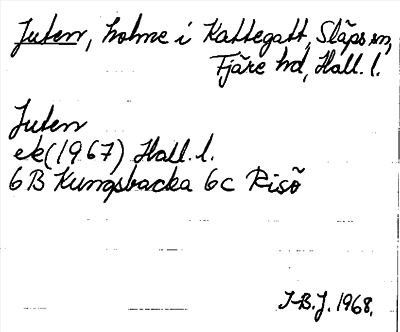 Juten, holme i Kattegatt, Släps sn,
Fjäre hd, Hall. l.
Juten
ek (1967) Hall. l.
6B Kungsbacka 6c Risö
I-B.J. 1968.